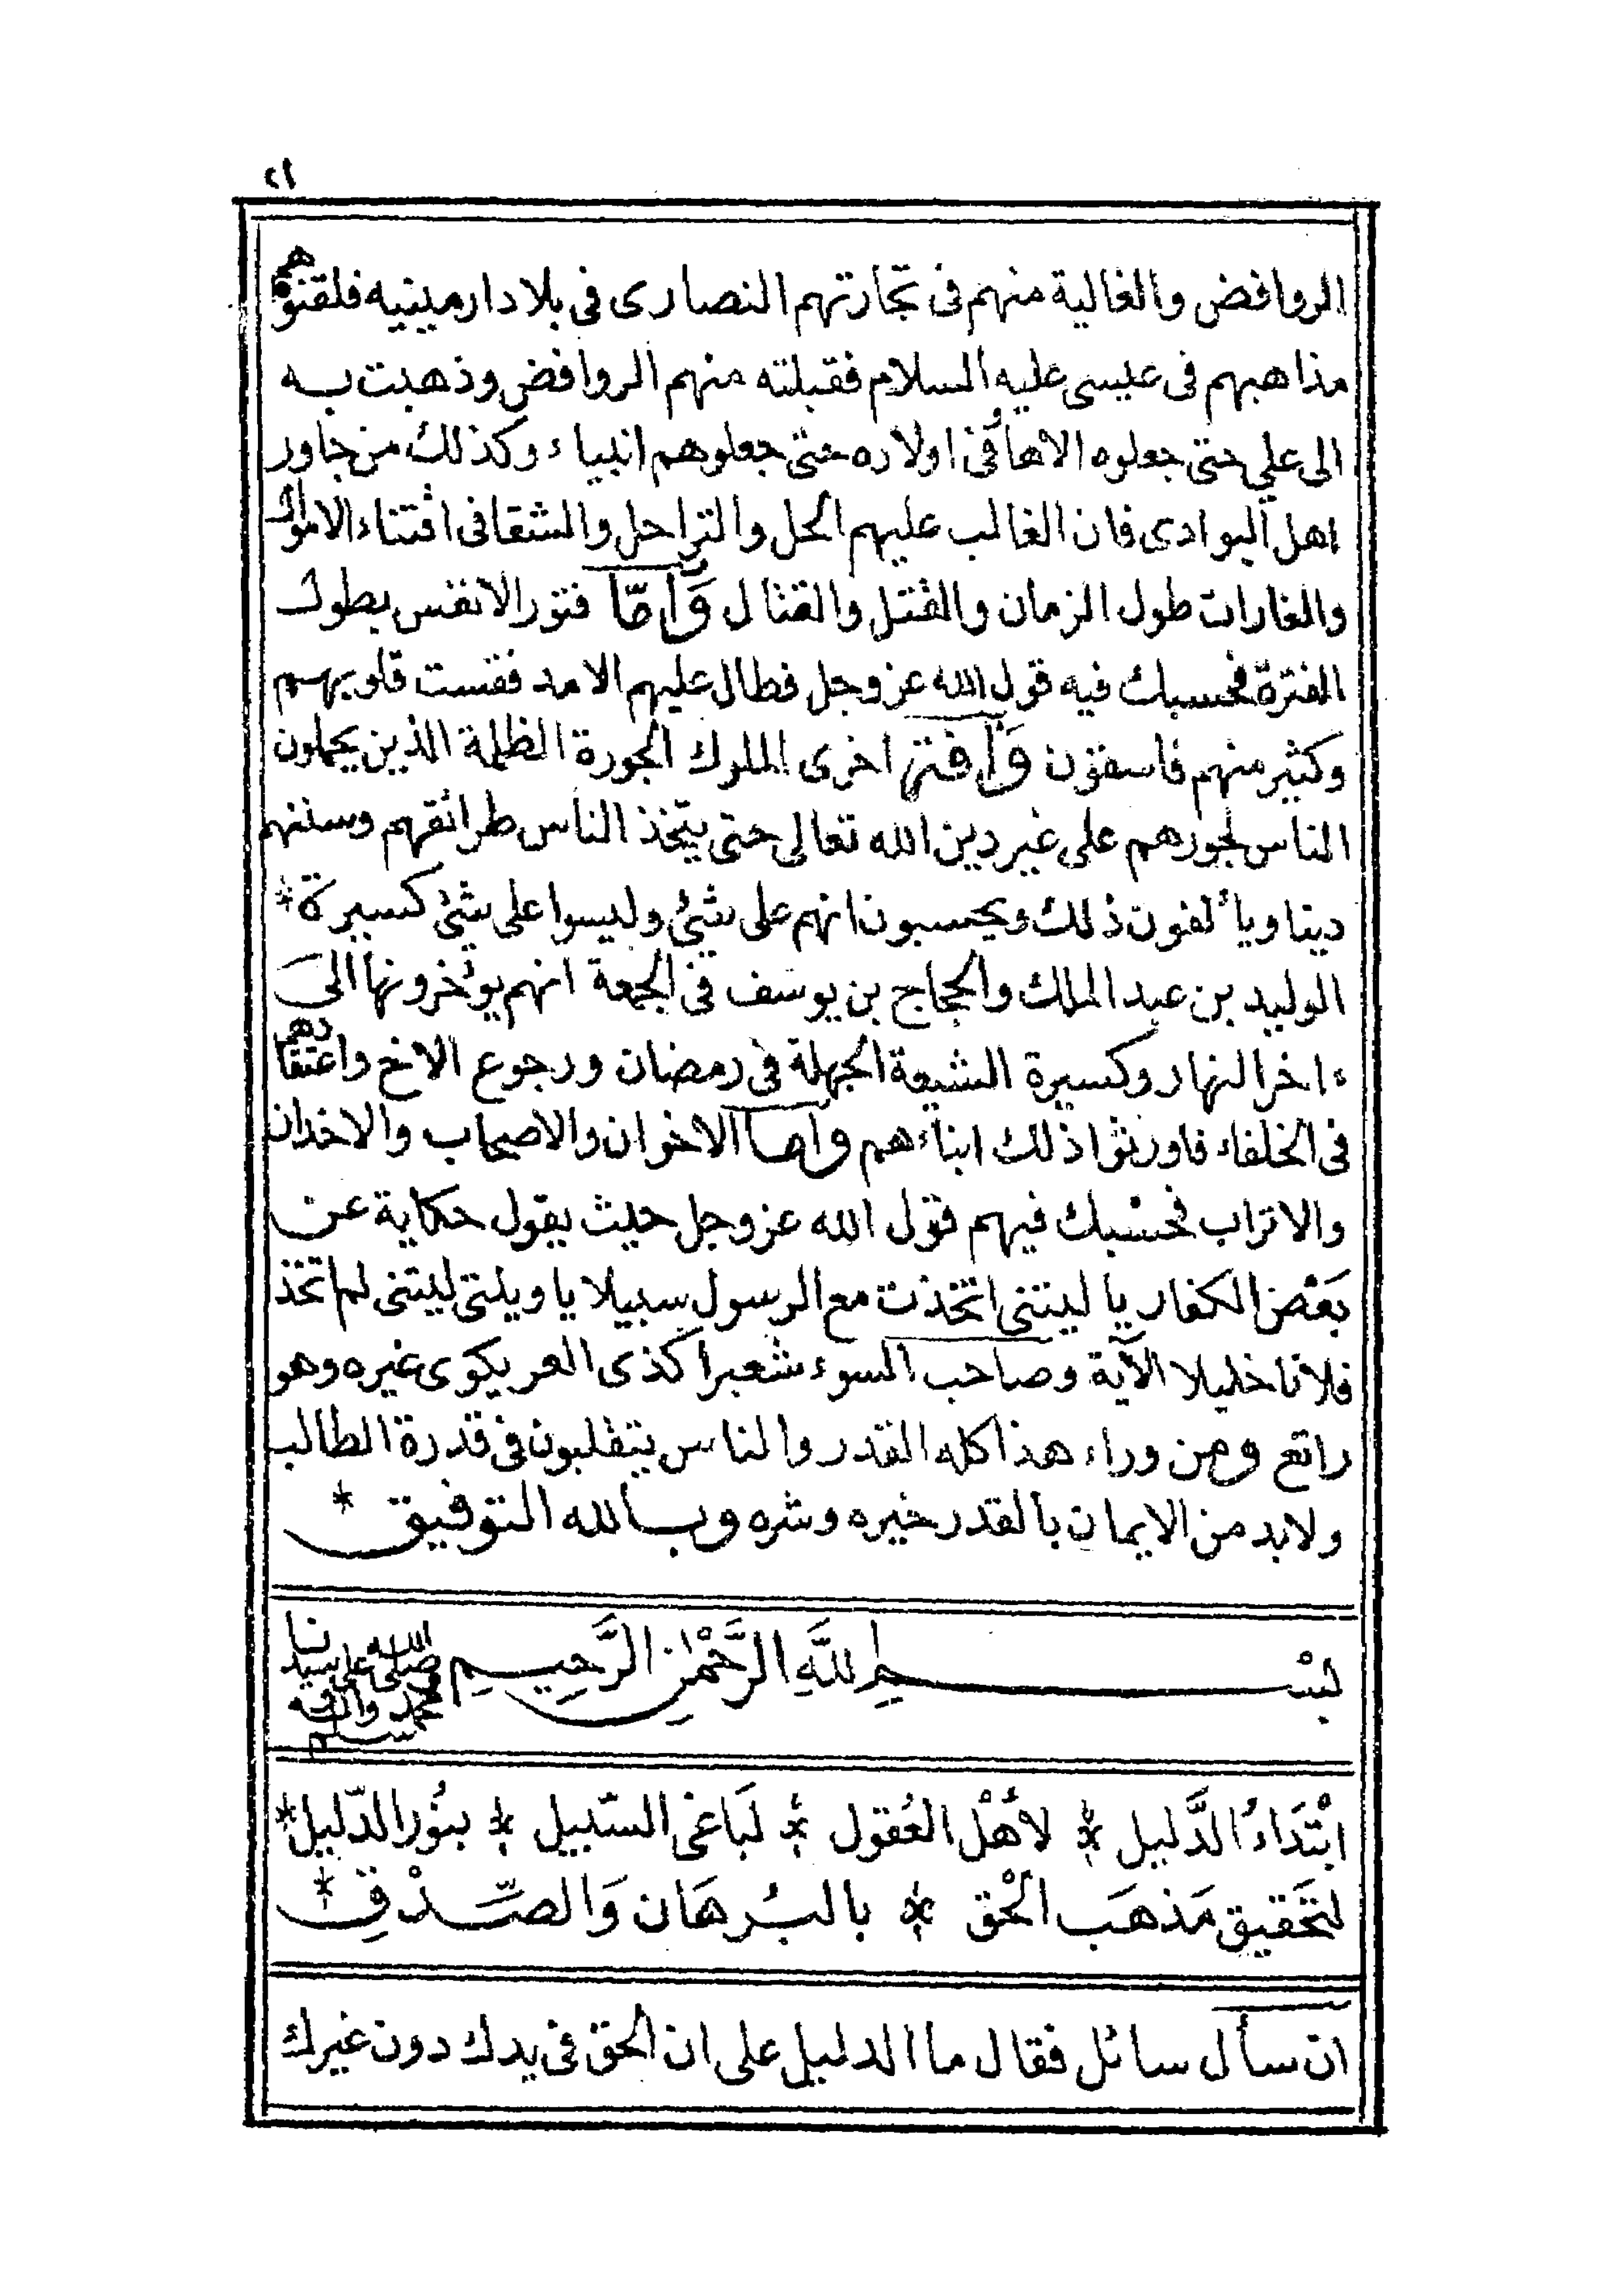 ٢١
الروافض والغالية منهم فى تجارتهم النصارى فى بلاد ارمينيه فلقنوهم
مذاهبهم فى عيسى عليه السلام فقبلته منهم الروافض وذهبت به
الى علي حتى جعلوه الاها وفى اولاده حتى جعلوهم انبياء وكذلك من جاور
اهل البوادى فان الغالب عليهم الحل والتراحل والشقا فى اقتناء الاموال
والغارات طول الزمان والقتل والقتال وَأمّا فتور الانفس بطول
الفترة فحسبك فيه قول الله عز وجل فطال عليهم الامد فقست قلوبهم
وكثير منهم فاسقون وَآفة اخرى الملوك الجورة الظلمة الذين يحملون
الناس لجورهم على غير دين الله تعالى حتى يتخذ الناس طرائقهم وسننهم
دينا ويألفون ذلك ويحسبون انهم على شئ وليسوا على شئ كسيرة *
الوليد بن عبد الملك والحجاج بن يوسف فى الجمعة انهم يؤخرونها الى
ءاخر النهار وكسيرة الشيعة الجهلة فى رمضان ورجوع الاخ واعتقادهم
فى الخلفاء فاورثوا ذلك ابناءهم واما الاخوان والاصحاب والاخدان
والاتراب فحسْبك فيهم قول الله عز وجل حيث يقول حكاية عن
بَعْض الكفار يا ليتنى اتخذت مع الرسول سبيلا يا ويلتى ليتنى لم اتخذ
فلانا خليلا الآية وصاحب السوء شعبرا كذى العر يكوى غيره وهو
راتع ومن وراء هذا كله القدر والناس يتقلبون فى قدرة الطالب
ولابد من الايمان بالقدر خيره وشره وبالله التوفيق *
بسْم اللَّهِ الرَّحْمٰنِ الرَّحِيمِ صلى الله على سيدنا محمد وآله وسلم
ابْتَدَاءُ الدَّليل * لأهْل العُقول * لبَاغى السّبيل * بنُور الدّليل *
لتحَقيق مَذهَب الحْق * بالبُرهَان وَالصِّدْقِ *
ان سأل سائل فقال ما الدليل على ان الحق فى يدك دون غيرك